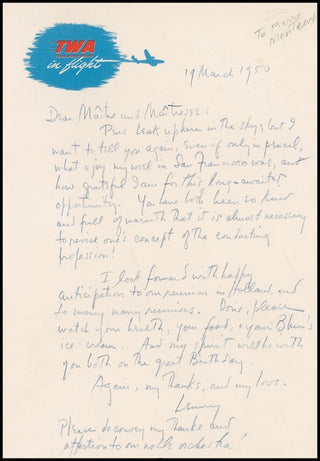 TWA
in flight
To Pierre
Monteux
19 March 1950
Dear Maître and Maîtresse:
Pens leak up here in the sky, but I
want to tell you again, even if only in pencil,
what a joy my week in San Francisco was, and
how grateful I am for this long-awaited
opportunity. You have both been so kind
and full of warmth that it is almost necessary
to revise one's concept of the conducting
profession!
I look forward with happy
anticipation to our reunion in Holland, and
to many many reunions. Doris, please
watch your health, your food, & your Blum's
ice-cream. And my spirit will be with
you both on the great Birthday.
Again, my thanks, and my love.
Lenny
Please do convey my thanks and
affection to our noble orchestra!